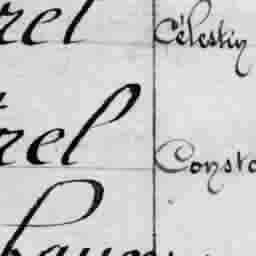 rel Célestin
rel Consta